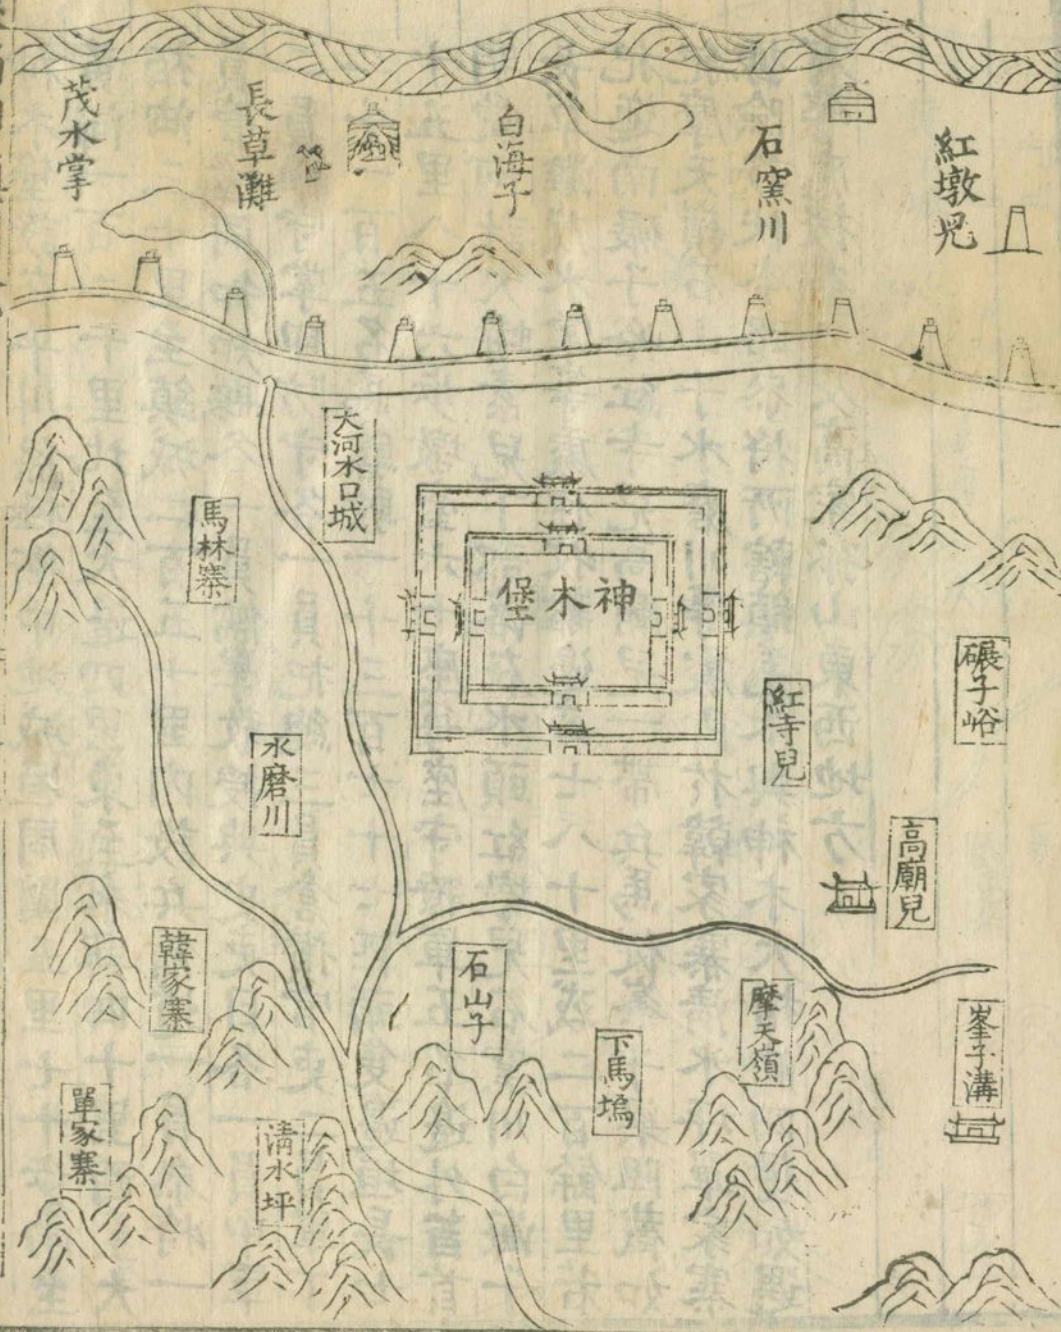 紅墩兒
石窯川
白海子
長草灘
茂水掌
大河水口城
馬林寨
神木堡
碾子峪
紅寺兒
水磨川
高廟兒
韓家寨
石山子
摩天嶺
峯子溝
下馬塢
單家寨
清水坪